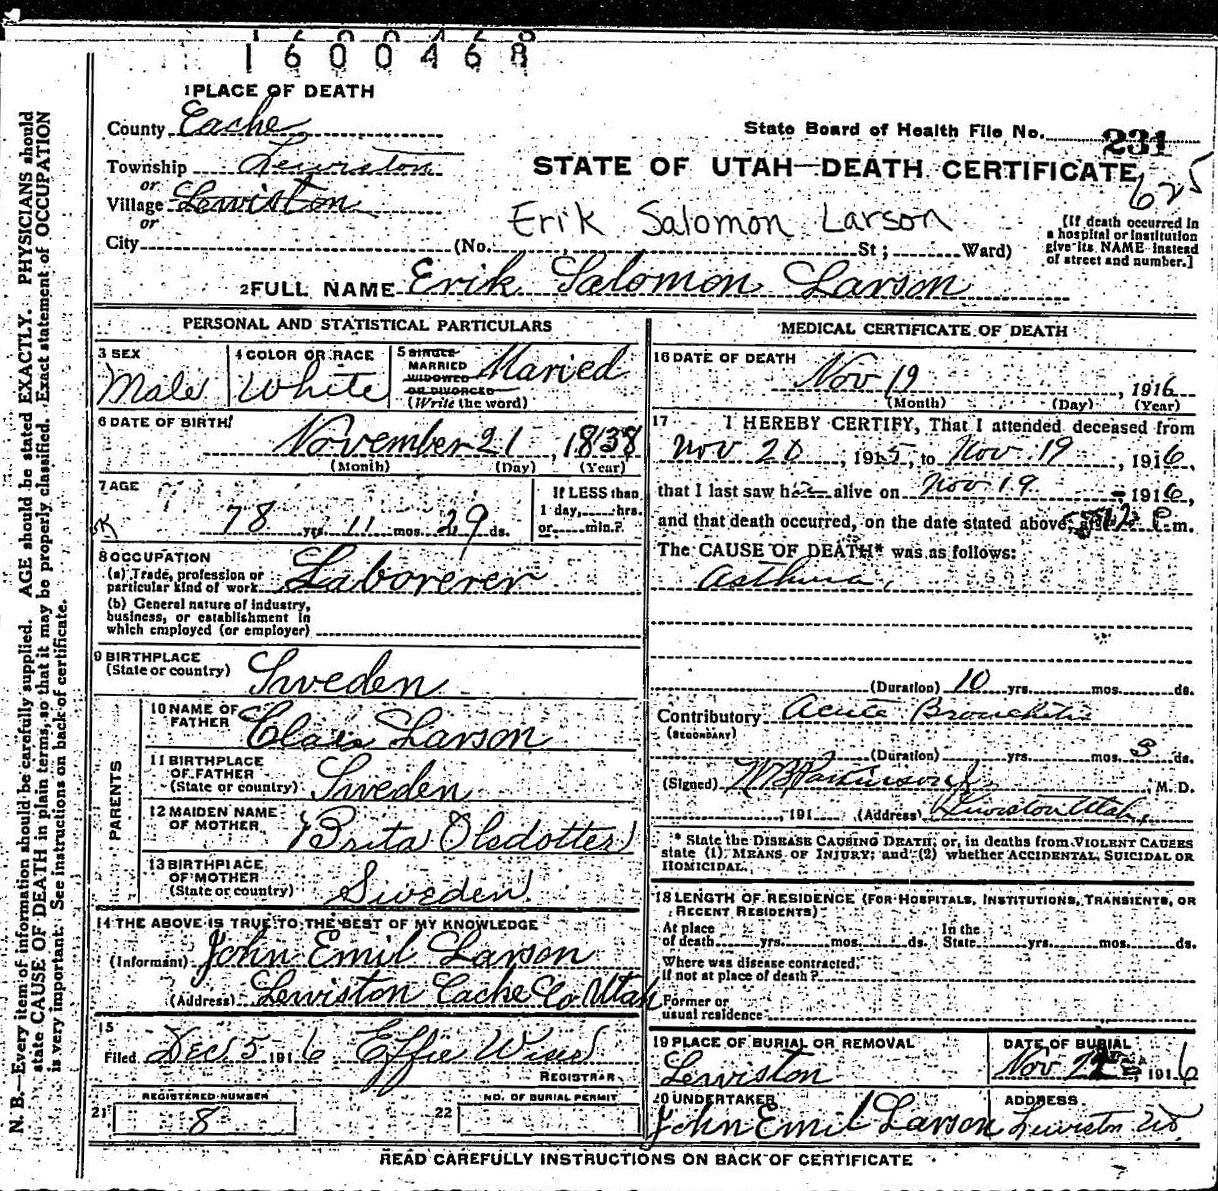 1600468
1 PLACE OF DEATH
County Cache
State Board of Health File No. 231
Township Lewiston
STATE OF UTAH—DEATH CERTIFICATE
625
or
Village Lewiston
or
Erik Salomon Larson
City (No. St; Ward)
(If death occurred in
a hospital or institution
give its NAME instead
of street and number.]
2 FULL NAME Erik Salomon Larson
PERSONAL AND STATISTICAL PARTICULARS
3 SEX
Male
4 COLOR OR RACE
White
5 SINGLE
MARRIED
WIDOWED
OR DIVORCED
(Write the word)
Maried
6 DATE OF BIRTH
November 21, 1838
(Month) (Day) (Year)
7 AGE
78 yrs. 11 mos. 29 ds.
If LESS than
1 day, hrs.
or min.?
8 OCCUPATION
(a) Trade, profession or
particular kind of work Laborerer
(b) General nature of industry,
business, or establishment in
which employed (or employer)
9 BIRTHPLACE
(State or country) Sweden
PARENTS
10 NAME OF
FATHER Larson
11 BIRTHPLACE
OF FATHER
(State or country) Sweden
12 MAIDEN NAME
OF MOTHER Brita Olsdotter
13 BIRTHPLACE
OF MOTHER
(State or country) Sweden
14 THE ABOVE IS TRUE TO THE BEST OF MY KNOWLEDGE
(Informant) John Emil Larson
(Address) Lewiston Cache Co Utah
15
Filed Dec 5 1916 Effie Wiser
REGISTRAR
REGISTERED NUMBER
21 8
NO. OF BURIAL PERMIT
22
MEDICAL CERTIFICATE OF DEATH
16 DATE OF DEATH
Nov 19, 1916
(Month) (Day) (Year)
17 I HEREBY CERTIFY, That I attended deceased from
Nov 20, 1915, to Nov. 19, 1916,
that I last saw h alive on Nov 19, 1916,
and that death occurred, on the date stated above, P.m.
The CAUSE OF DEATH* was as follows:
Asthma,
(Duration) 10 yrs. mos. ds.
Contributory Acute Bronchitis
(SECONDARY)
(Duration) yrs. mos. 3 ds.
(Signed) W B Parkinson Jr, M. D.
, 191 (Address) Lewiston Utah,
* State the DISEASE CAUSING DEATH; or, in deaths from VIOLENT CAUSES
state (1) MEANS OF INJURY; and (2) whether ACCIDENTAL, SUICIDAL OR
HOMICIDAL.
18 LENGTH OF RESIDENCE (FOR HOSPITALS, INSTITUTIONS, TRANSIENTS, OR
RECENT RESIDENTS)
At place In the
of death yrs. mos. ds. State yrs. mos. ds.
Where was disease contracted,
if not at place of death?
Former or
usual residence
19 PLACE OF BURIAL OR REMOVAL
Lewiston
DATE OF BURIAL
Nov , 1916
20 UNDERTAKER
John Emil Larson
ADDRESS
Lewiston Ut.
READ CAREFULLY INSTRUCTIONS ON BACK OF CERTIFICATE
N. B.—Every item of information should be carefully supplied. AGE should be stated EXACTLY. PHYSICIANS should
state CAUSE OF DEATH in plain terms, so that it may be properly classified. Exact statement of OCCUPATION
is very important. See instructions on back of certificate.